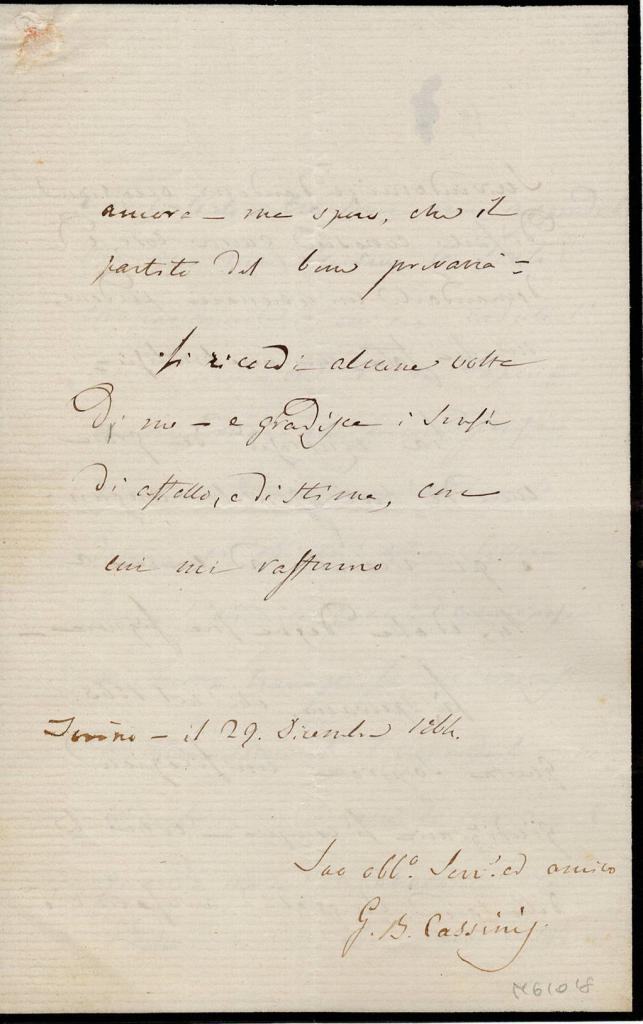 ancora – ma spero, che il
partito del bene prevarrà =
Si ricordi alcune volte
Di me – e gradisca i sensi
di affetto, e di stima, con
cui mi raffermo
Torino – il 29. Dicembre 1864.
Suo obbl.o Serv.e ed amico
G. B. Cassinis